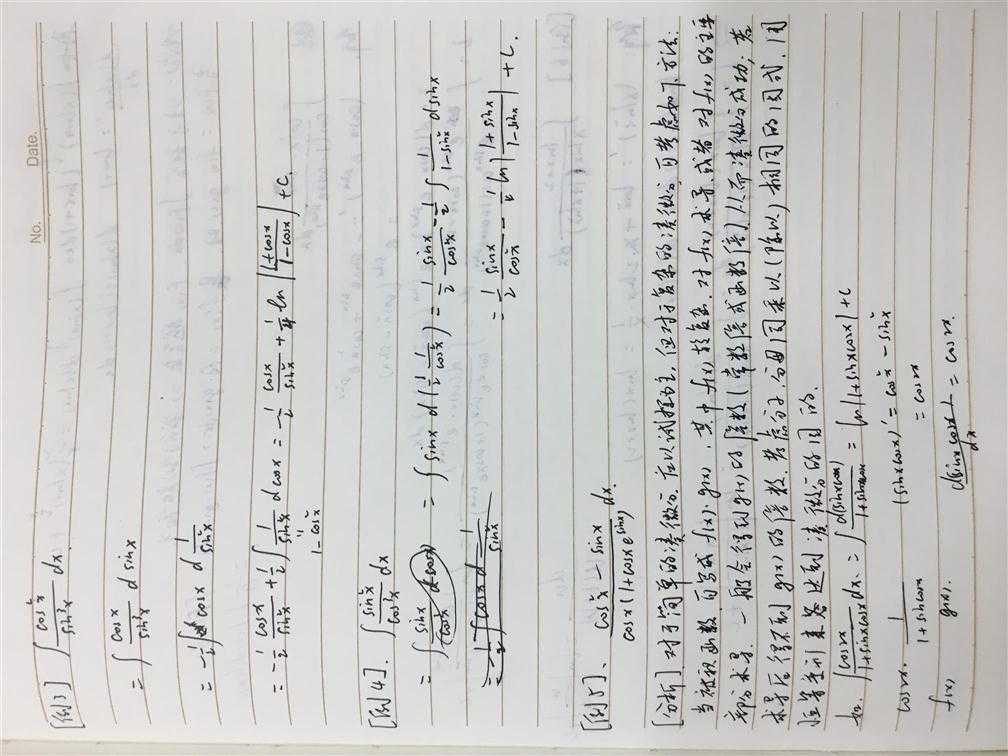 No.
Date.
[例3] ∫ cos²x/sin³x dx
= ∫ cos²x/sin³x d sinx
= -1/2 ∫ cosx d 1/sin²x
= -1/2 cosx/sin²x + 1/2 ∫ 1/sin²x d cosx = -1/2 cosx/sin²x + 1/4 ln |1+cosx/1-cosx| + C.
1-cos²x
[例4]. ∫ sin²x/cos³x dx
= ∫ sinx/cos³x d cosx = ∫ sinx d(1/2 1/cos²x) = 1/2 sinx/cos²x - 1/2 ∫ 1/1-sin²x d sinx
= 1/2 sinx/cos²x - 1/4 ln |1+sinx/1-sinx| + C.
[例5]、 ∫ cos²x - sinx / cosx(1+cosx e^sinx) dx.
[分析] 对于简单的凑微分,应以试探为主,但对于复杂的凑微分,可考虑如下方法:
当被积函数可写成 f(x)·g(x),其中 f(x)较复杂,对 f(x)求导,或者对 f(x)的主要
部分求导,一般会得到 g(x)的倍数(常数倍或函数倍)从而凑微分成功,若
求导后得不到 g(x)的倍数,考虑分子、分母同乘以(除以)相同的因式,用
恒等变形来达到凑微分的目的.
如. ∫ cos2x/1+sinxcosx dx. = ∫ d(sinxcosx)/1+sinxcosx = ln|1+sinxcosx| + C
cos2x. 1/1+sinxcosx (sinxcosx)' = cos²x - sin²x
= cos2x
f(x), g(x). d(sinxcosx)/dx = cos2x.